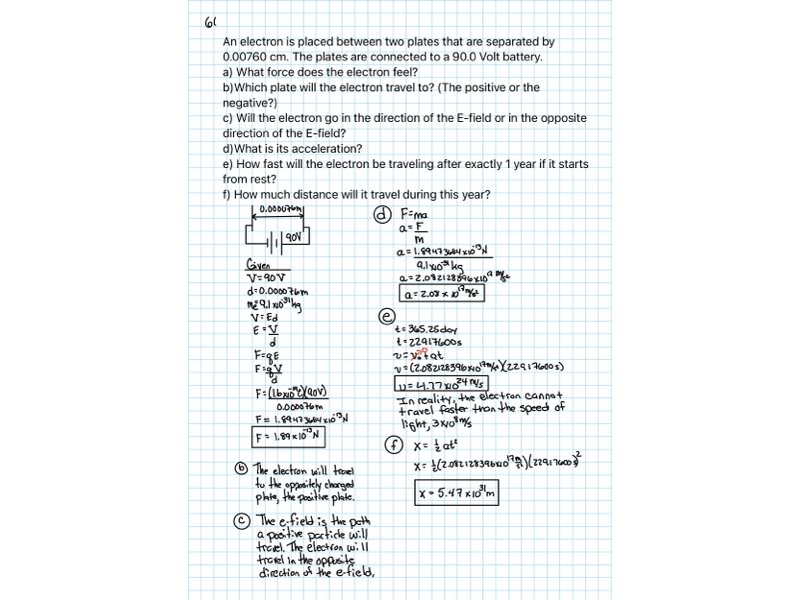 61
An electron is placed between two plates that are separated by
0.00760 cm. The plates are connected to a 90.0 Volt battery.
a) What force does the electron feel?
b)Which plate will the electron travel to? (The positive or the
negative?)
c) Will the electron go in the direction of the E-field or in the opposite
direction of the E-field?
d)What is its acceleration?
e) How fast will the electron be traveling after exactly 1 year if it starts
from rest?
f) How much distance will it travel during this year?
0.000076m
90V
Given
V=90V
d=0.000076m
me=9.1x10⁻³¹kg
V=Ed
E=V/d
F=qE
F=qV/d
F=(1.6x10⁻¹⁹C)(90V)
0.000076m
F= 1.89473684x10⁻¹³N
F= 1.89x10⁻¹³N
b The electron will travel
to the oppositely charged
plate, the positive plate.
c The e-field is the path
a positive particle will
travel. The electron will
travel in the opposite
direction of the e-field.
d F=ma
a=F/m
a=1.89473684x10⁻¹³N
9.1x10⁻³¹kg
a=2.082128396x10¹⁷m/s²
a=2.08x10¹⁷m/s²
e
t=365.25day
t=22917600s
v=v₀+at
v=(2.082128396x10¹⁷m/s²)(22917600s)
v=4.77x10²⁴m/s
In reality, the electron cannot
travel faster than the speed of
light, 3x10⁸m/s
f x=½at²
x=½(2.082128396x10¹⁷m/s²)(22917600s)²
x=5.47x10³¹m